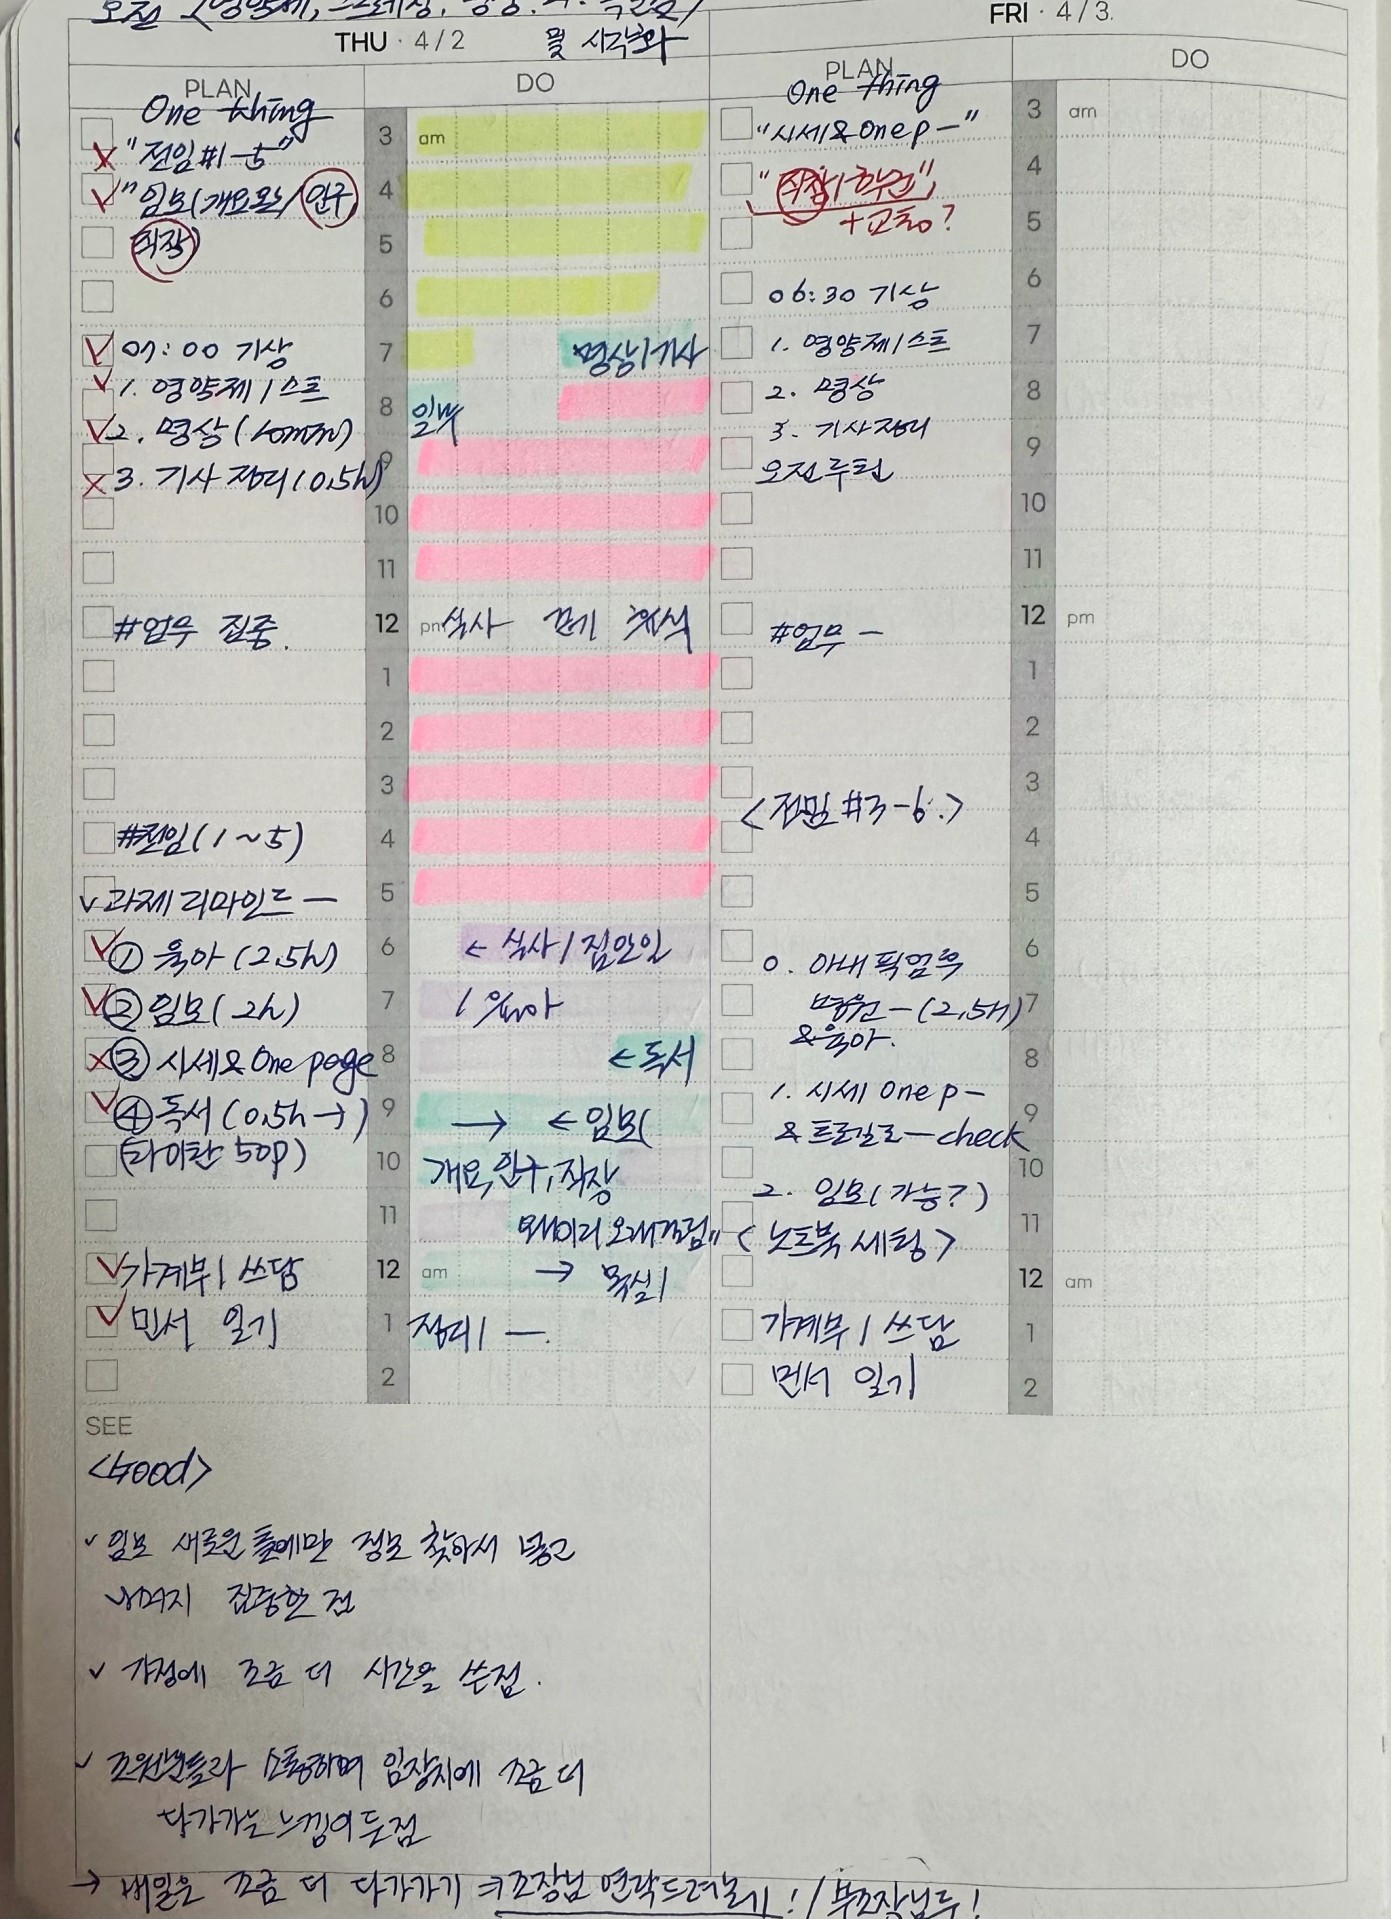 THU · 4/2
및 시각화
PLAN
DO
One thing
"전임 #1-5"
"임보(개요완/인구
직장)
07:00 기상
1. 영양제/스트
2. 명상(10min)
3. 기사 정리(0.5h)
#업무 집중.
#전임(1~5)
과제 리마인드 —
① 육아(2.5h)
② 임보(2h)
③ 시세&One page
④ 독서(0.5h→)
(타이탄 50p)
가계부/쓰담
민서 일기
3 am
4
5
6
7 명상/기사
8 일부
9
10
11
12 pm 식사 휴식
1
2
3
4
5
6 ← 식사/집안일
7 /육아
8 ← 독서
9 → ← 임보(
10 개요,인구,직장
11 왜이리 오래걸림"
12 am →
1 정리/ —.
2
SEE
<Good>
임보 새로운 틀에만 정보 찾아서 넣고
나머지 집중한 점
가정에 조금 더 시간을 쓴점.
조원분들과 소통하며 임장지에 조금 더
다가가는 느낌이 든점
→ 내일은 조금 더 다가가기 조장님 연락드려보기! / 부조장님두!
FRI · 4/3.
PLAN
DO
One thing
"시세&One p—"
"직장/학군"
+교통?
06:30 기상
1. 영양제/스트
2. 명상
3. 기사정리
오전루틴
#업무 —
<전임 #3-6.>
0. 아내 픽업후
병원—(2.5H)
&육아.
1. 시세 One p—
& —check
2. 임보(가능?)
<노트북 세팅>
가계부/쓰담
민서 일기
3 am
4
5
6
7
8
9
10
11
12 pm
1
2
3
4
5
6
7
8
9
10
11
12 am
1
2